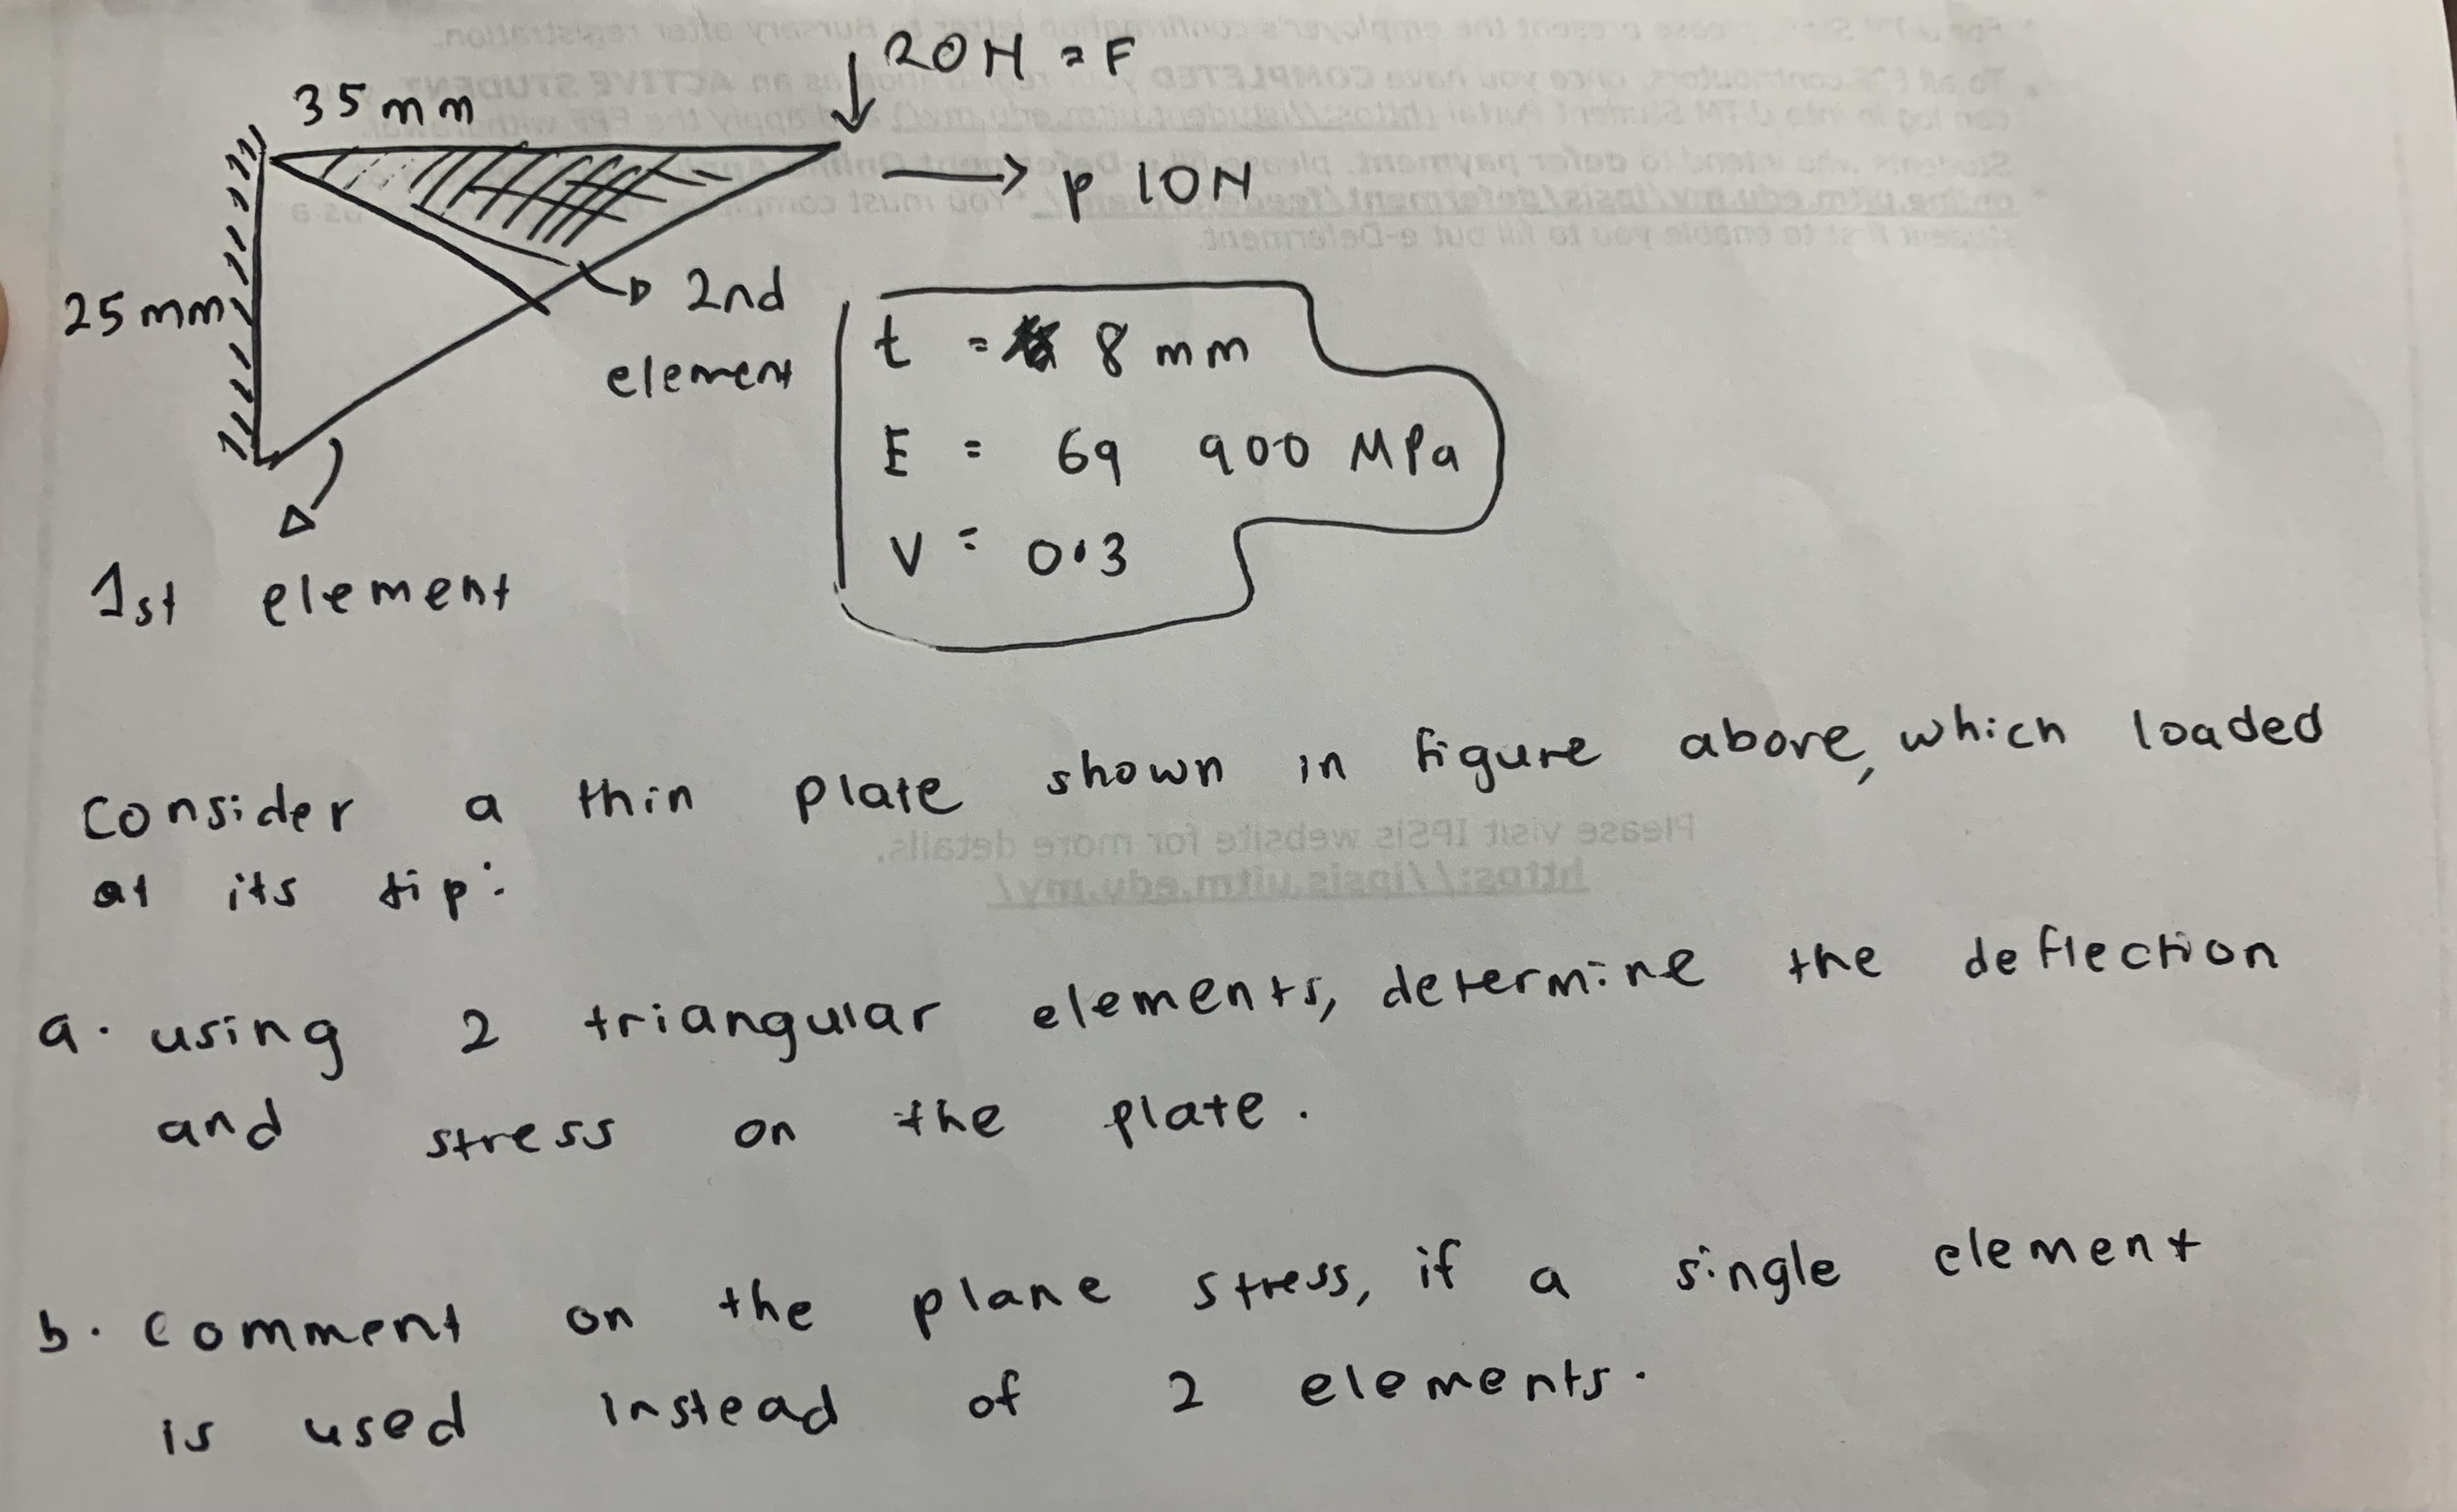 20N = F
35mm
P 10N
25mm
2nd
element
t = 8 mm
E = 69 900 MPa
V = 0.3
1st element
Consider a thin plate shown in figure above, which loaded
at its tip:
a. using 2 triangular elements, determine the deflection
and stress on the plate.
Please visit IPSIS website for more details.
https://ipsis.uitm.edu.my/
b. comment on the plane stress, if a single element
is used instead of 2 elements.